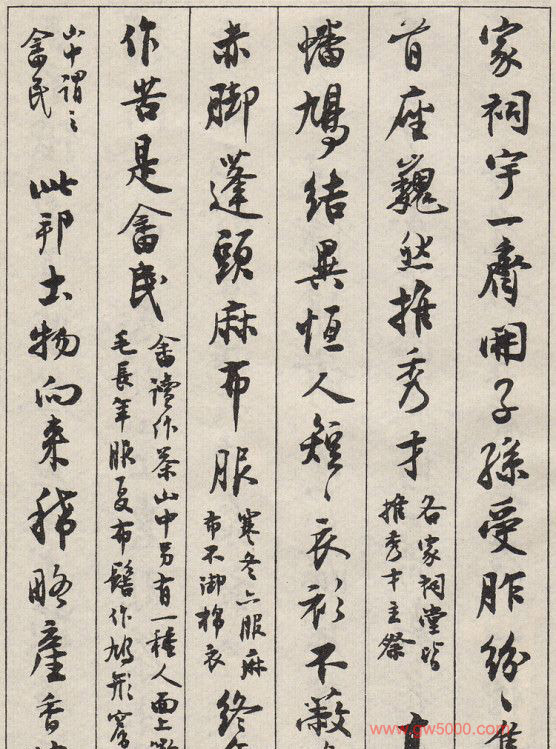 家祠宇一齊開子孫受胙紛〻
首座巍然推秀才
各家祠堂皆
推秀才主祭
幡鳩結異恒人短〻衣衫不蔽
赤脚蓬頭麻布服
寒冬亦服麻
布不御棉衣
终
作苦是畲民
畲讀作茶山中另有一種人面上
毛長年服夏布髻作鳩形
山中謂之
畲民
此邦土物向来稀略產香
www.gw5000.com